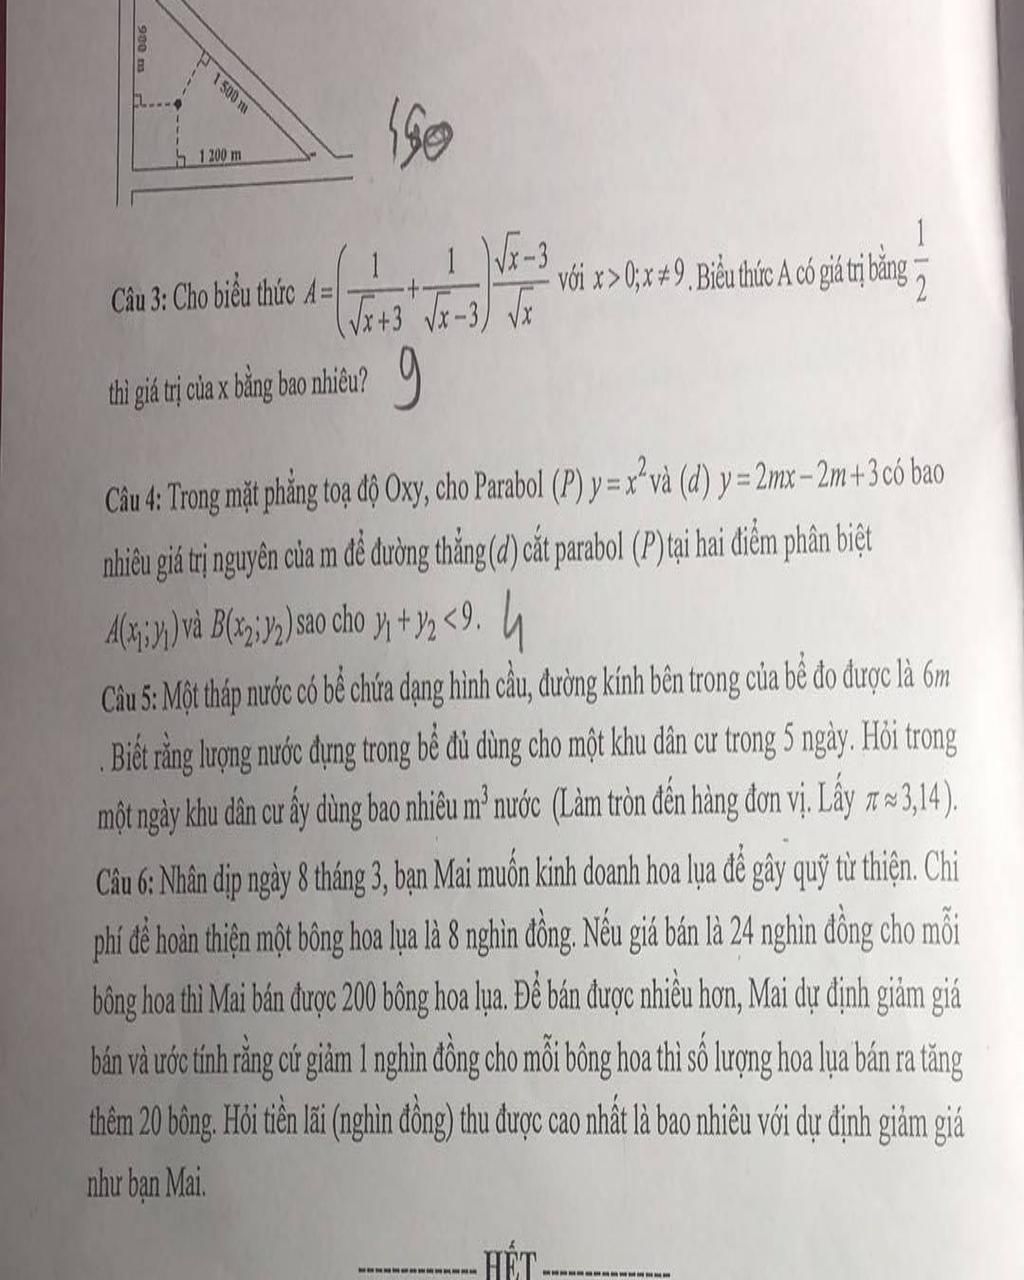 900 m
1 500 m
1 200 m
Câu 3: Cho biểu thức A = (1/(√x+3) + 1/(√x−3)) (√x−3)/√x với x > 0; x ≠ 9. Biểu thức A có giá trị bằng 1/2
thì giá trị của x bằng bao nhiêu? 9
Câu 4: Trong mặt phẳng toạ độ Oxy, cho Parabol (P) y = x² và (d) y = 2mx − 2m + 3 có bao
nhiêu giá trị nguyên của m để đường thẳng (d) cắt parabol (P) tại hai điểm phân biệt
A(x₁; y₁) và B(x₂; y₂) sao cho y₁ + y₂ < 9. 4
Câu 5: Một tháp nước có bể chứa dạng hình cầu, đường kính bên trong của bể đo được là 6m
. Biết rằng lượng nước đựng trong bể đủ dùng cho một khu dân cư trong 5 ngày. Hỏi trong
một ngày khu dân cư ấy dùng bao nhiêu m³ nước (Làm tròn đến hàng đơn vị. Lấy π ≈ 3,14).
Câu 6: Nhân dịp ngày 8 tháng 3, bạn Mai muốn kinh doanh hoa lụa để gây quỹ từ thiện. Chi
phí để hoàn thiện một bông hoa lụa là 8 nghìn đồng. Nếu giá bán là 24 nghìn đồng cho mỗi
bông hoa thì Mai bán được 200 bông hoa lụa. Để bán được nhiều hơn, Mai dự định giảm giá
bán và ước tính rằng cứ giảm 1 nghìn đồng cho mỗi bông hoa thì số lượng hoa lụa bán ra tăng
thêm 20 bông. Hỏi tiền lãi (nghìn đồng) thu được cao nhất là bao nhiêu với dự định giảm giá
như bạn Mai.
------------- HẾT --------------